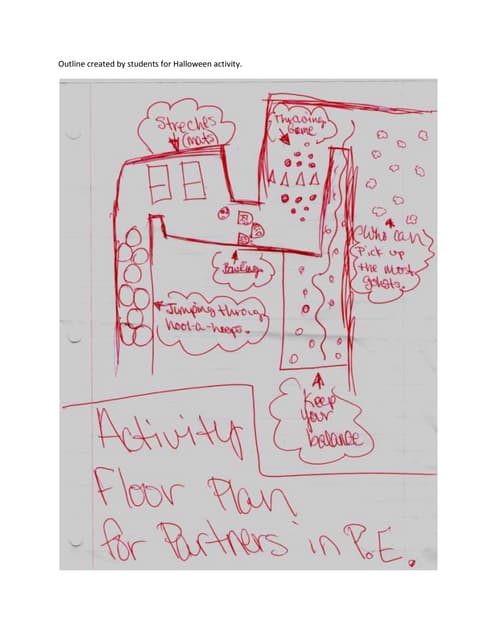 Outline created by students for Halloween activity.
Streches
(mats)
Throwing
Game
Who can
pick up
the most
gohsts.
Bowling
Jumping through
hool-a-hoops.
Keep
your
balance
Activity
Floor Plan
for Partners in P.E.